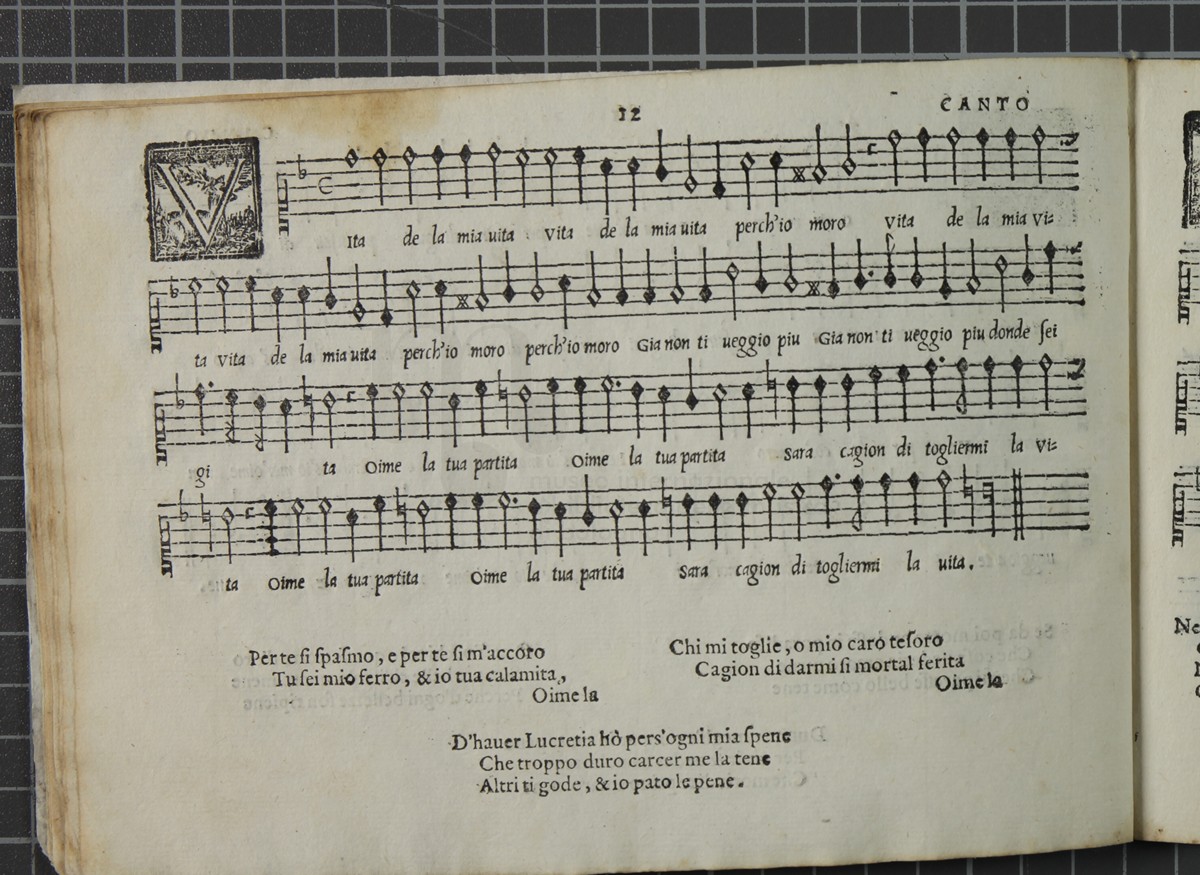 12
CANTO
VIta de la mia uita vita de la mia uita perch'io moro vita de la mia vi=
ta vita de la mia uita perch'io moro perch'io moro Gia non ti ueggio piu Gia non ti ueggio piu donde sei
gi ta oime la tua partita Oime la tua partita Sara cagion di togliermi la vi=
ta Oime la tua partita Oime la tua partita Sara cagion di togliermi la uita.
Per te si ſpaſmo, e per te ſi m'accóro
Tu ſei mio ferro, & io tua calamita,
Oime la
Chi mi toglie, o mio caro teſoro
Cagion di darmi ſi mortal ferita
Oime la
D'hauer Lucretia hò pers'ogni mia ſpene
Che troppo duro carcer me la tene
Altri ti gode, & io pato le pene.
Ne